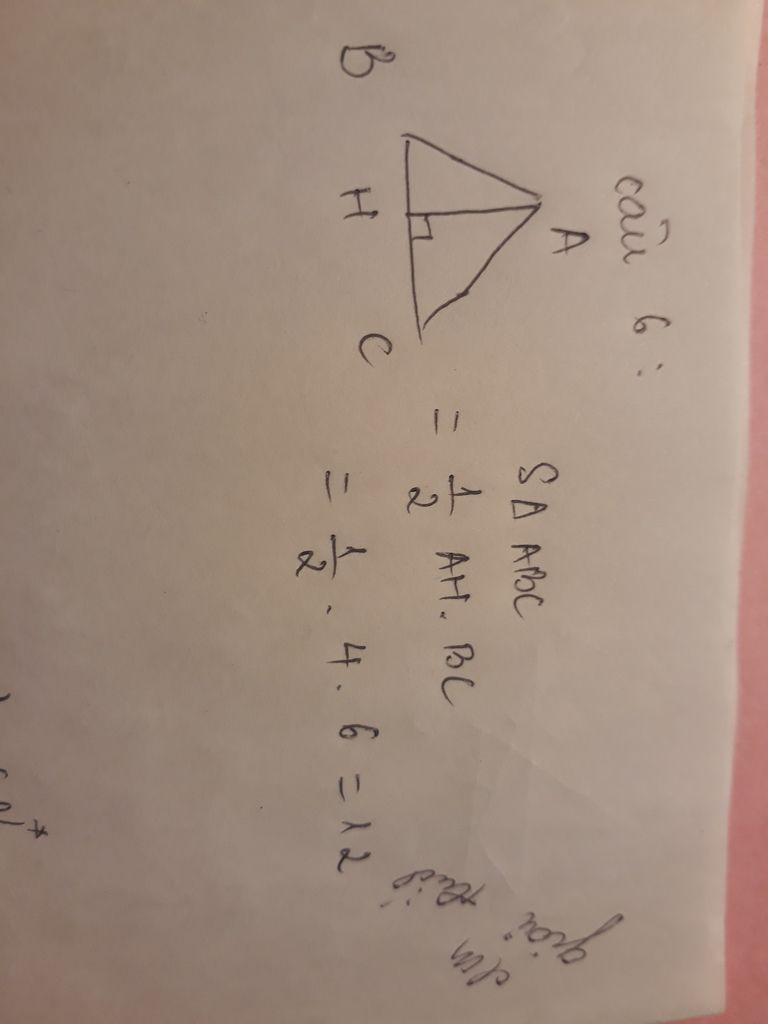 câu 6:
A
B H C
S∆ ABC
= 1/2 AH. BC
= 1/2 . 4 . 6 = 12
giải